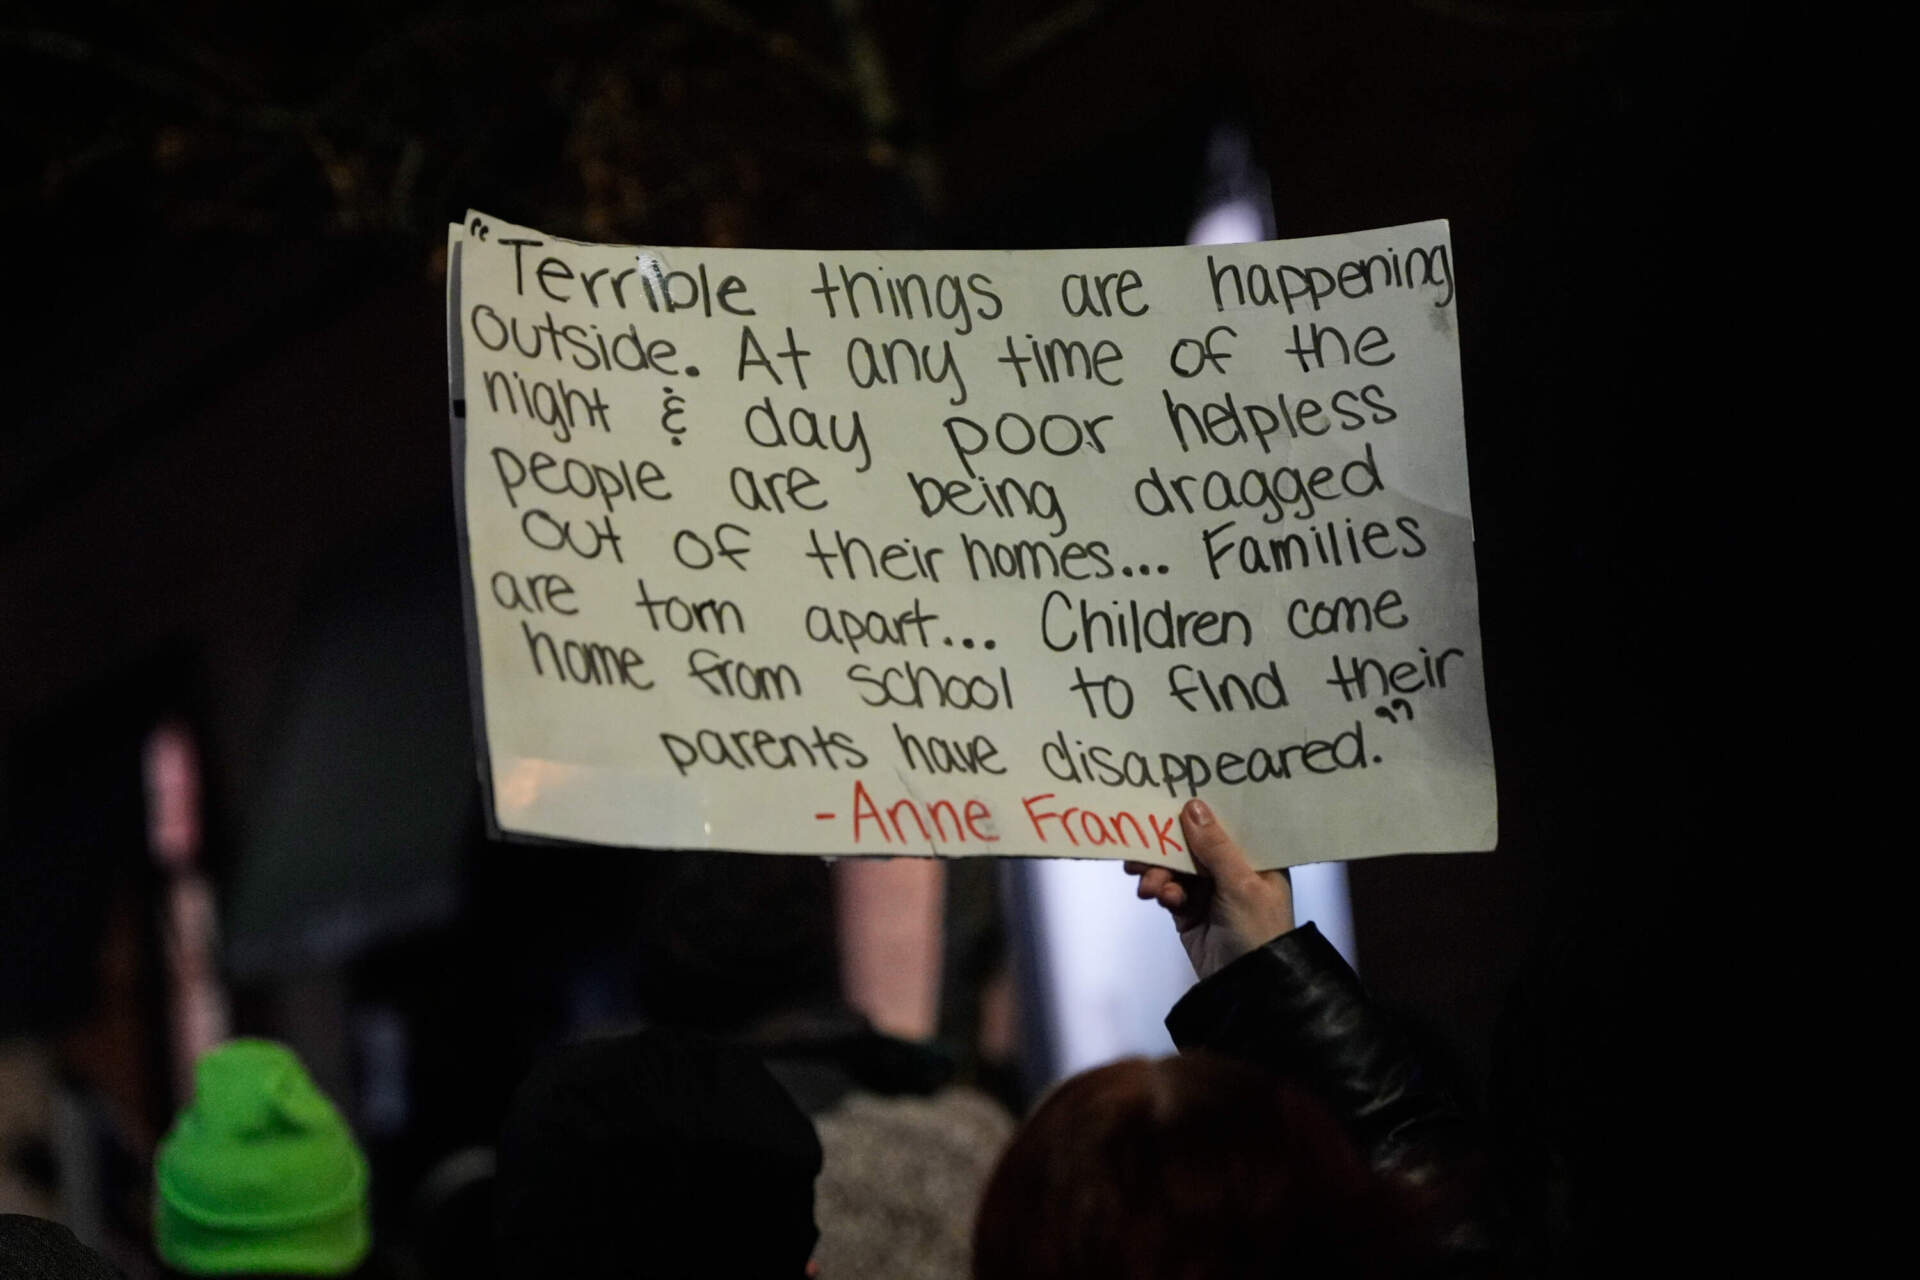 "Terrible things are happening
outside. At any time of the
night & day poor helpless
people are being dragged
out of their homes... Families
are torn apart... Children come
home from school to find their
parents have disappeared."
-Anne Frank